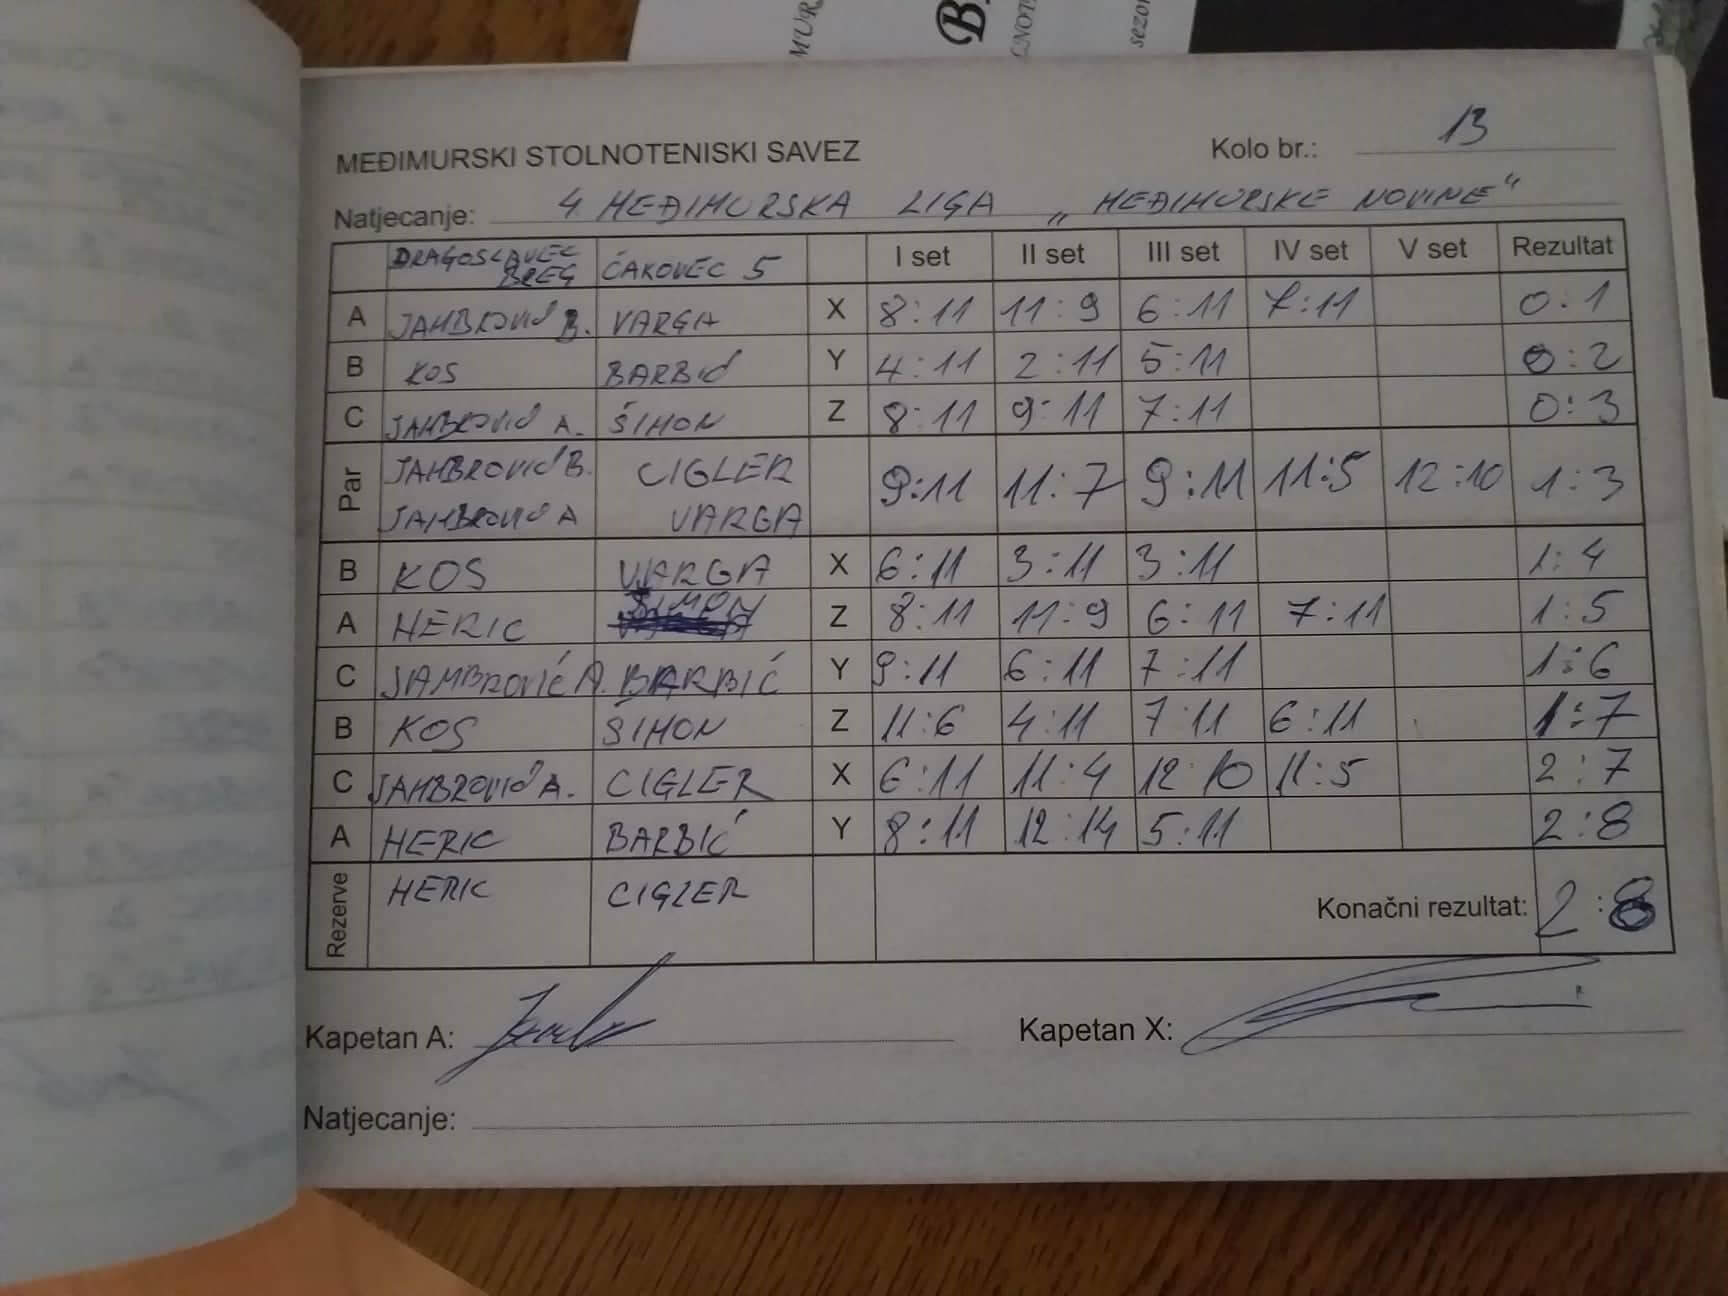 MUR
B
sezo
MEĐIMURSKI STOLNOTENISKI SAVEZ
Kolo br.: 13
Natjecanje: 4. MEĐIMURSKA LIGA „MEĐIMURSKE NOVINE“
DRAGOSLAVEC BREG ČAKOVEC 5 I set II set III set IV set V set Rezultat
A JAMBROVIĆ B. VARGA X 8:11 11:9 6:11 7:11 0:1
B KOS BARBIĆ Y 4:11 2:11 5:11 0:2
C JAMBROVIĆ A. ŠIMON Z 8:11 9:11 7:11 0:3
Par JAMBROVIĆ B. CIGLER 9:11 11:7 9:11 11:5 12:10 1:3
JAMBROVIĆ A VARGA
B KOS VARGA X 6:11 3:11 3:11 1:4
A HERIC ŠIMON Z 8:11 11:9 6:11 7:11 1:5
C JAMBROVIĆ A. BARBIĆ Y 9:11 6:11 7:11 1:6
B KOS ŠIMON Z 11:6 4:11 7:11 6:11 1:7
C JAMBROVIĆ A. CIGLER X 6:11 11:4 12:10 11:5 2:7
A HERIC BARBIĆ Y 8:11 12:14 5:11 2:8
Rezerve HERIC CIGLER Konačni rezultat: 2:8
Kapetan A: Kapetan X:
Natjecanje: